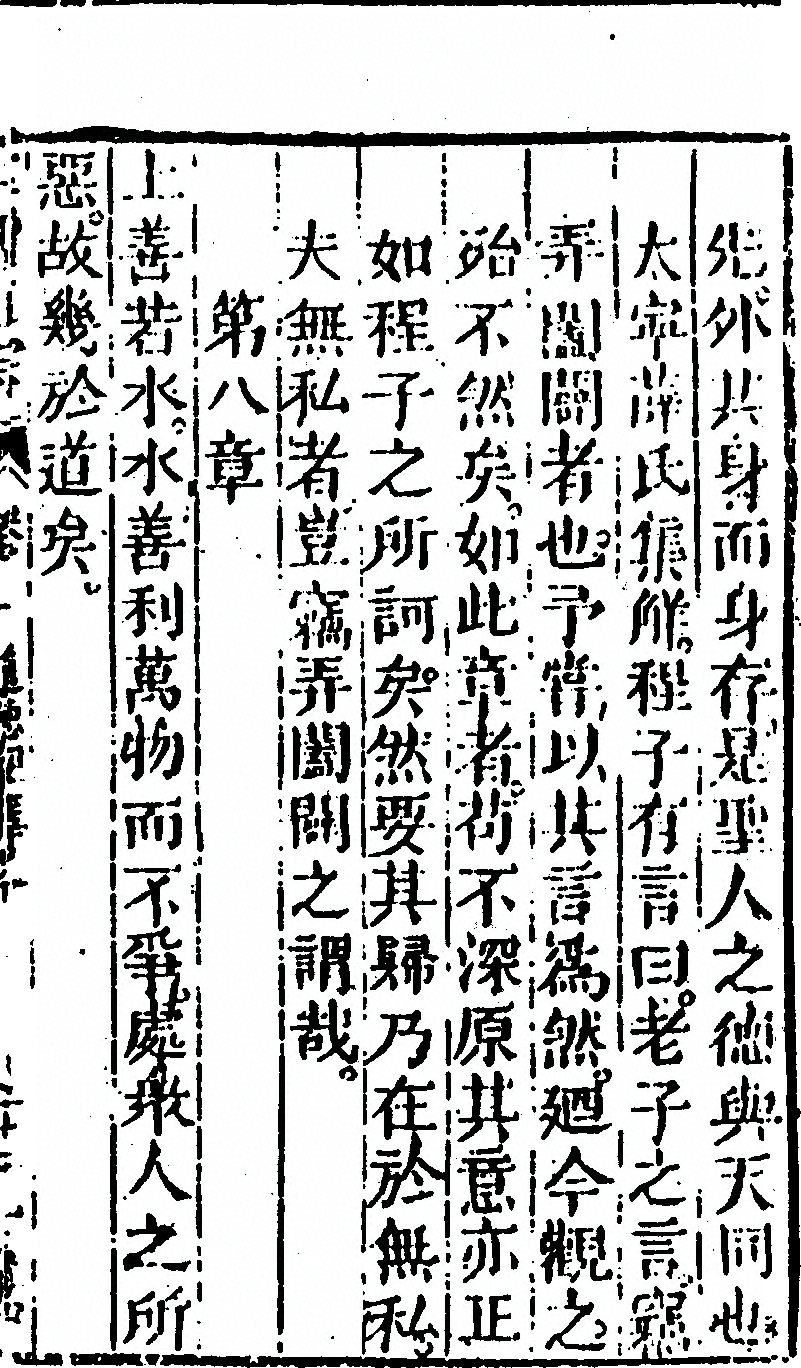 先外其身而身存是聖人之德與天同也
大寧薛氏蕙雖程子有言曰老子之言竊
弄闔闢者也予嘗以其言爲然廼今觀之
殆不然矣如此章者苟不深原其意亦正
如程子之所訶矣然要其歸乃在於無私
夫無私者豈竊弄闔闢之謂哉
第八章
上善若水水善利萬物而不爭處衆人之所
惡故幾於道矣